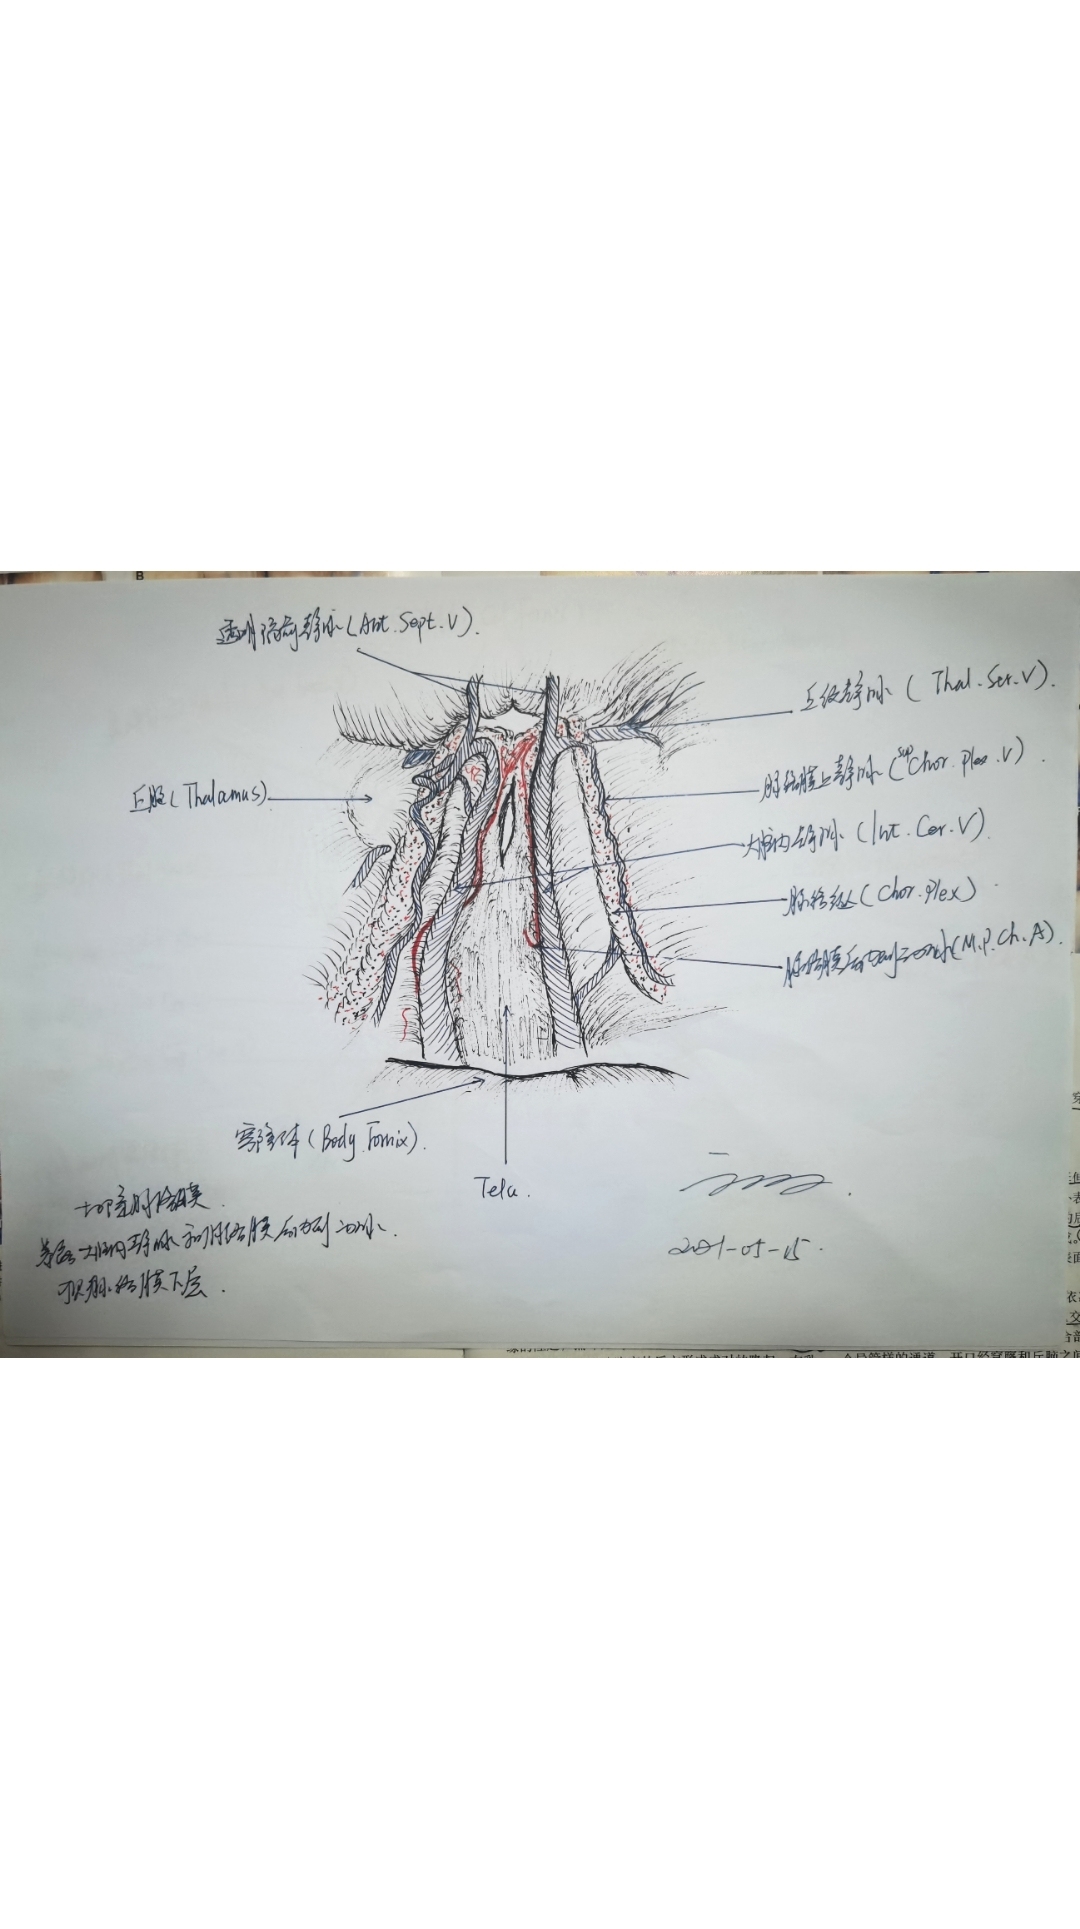 透明隔前静脉 (Ant. Sept. V).
丘纹静脉 ( Thal. Str. V).
脉络膜上静脉 (sup Chor. plex. V)
丘脑 (Thalamus)
大脑内静脉 (Int. Cer. V)
脉络丛 (Chor. Plex)
脉络膜后内侧动脉 (M. P. Ch. A).
穹窿体 (Body. Fornix).
Tela.
脉络膜
大脑内静脉和脉络膜后内侧动脉.
脉络膜下层.
2021-05-15.
B